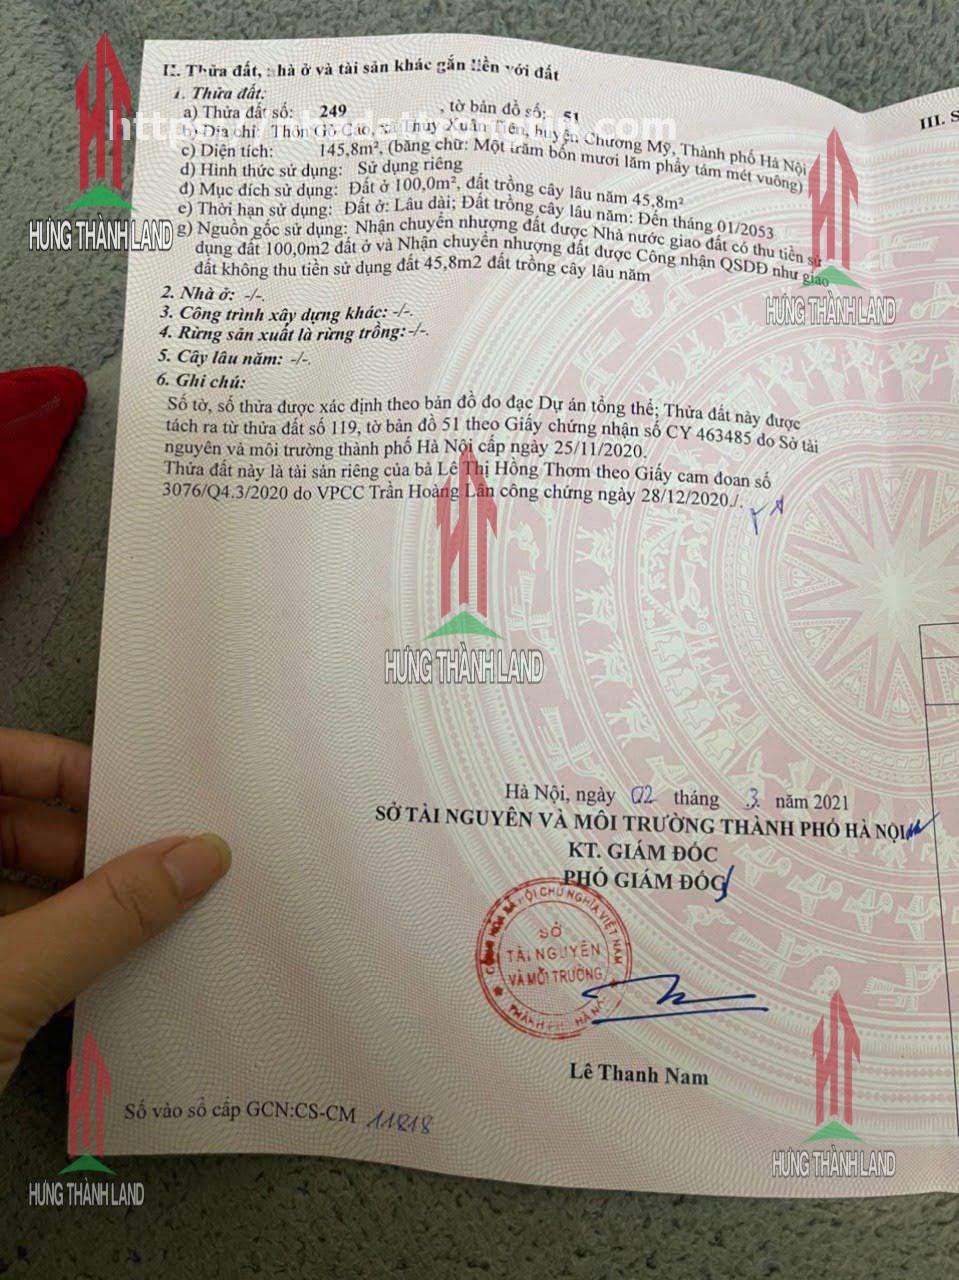 II. Thửa đất, nhà ở và tài sản khác gắn liền với đất
1. Thửa đất:
a) Thửa đất số: 249 , tờ bản đồ số: 51
b) Địa chỉ: Thôn Gò Cáo, xã Thuỷ Xuân Tiên, huyện Chương Mỹ, Thành phố Hà Nội
c) Diện tích: 145,8m², (bằng chữ: Một trăm bốn mươi lăm phẩy tám mét vuông)
d) Hình thức sử dụng: Sử dụng riêng
đ) Mục đích sử dụng: Đất ở 100,0m², đất trồng cây lâu năm 45,8m²
e) Thời hạn sử dụng: Đất ở: Lâu dài; Đất trồng cây lâu năm: Đến tháng 01/2053
g) Nguồn gốc sử dụng: Nhận chuyển nhượng đất được Nhà nước giao đất có thu tiền sử
dụng đất 100,0m2 đất ở và Nhận chuyển nhượng đất được Công nhận QSDĐ như giao
đất không thu tiền sử dụng đất 45,8m2 đất trồng cây lâu năm
2. Nhà ở: -/-.
3. Công trình xây dựng khác: -/-.
4. Rừng sản xuất là rừng trồng:-/-.
5. Cây lâu năm: -/-.
6. Ghi chú:
Số tờ, số thửa được xác định theo bản đồ đo đạc Dự án tổng thể; Thửa đất này được
tách ra từ thửa đất số 119, tờ bản đồ 51 theo Giấy chứng nhận số CY 463485 do Sở tài
nguyên và môi trường thành phố Hà Nội cấp ngày 25/11/2020.
Thửa đất này là tài sản riêng của bà Lê Thị Hồng Thơm theo Giấy cam đoan số
3076/Q4.3/2020 do VPCC Trần Hoàng Lân công chứng ngày 28/12/2020./.
III. S
Hà Nội, ngày 02 tháng 3 năm 2021
SỞ TÀI NGUYÊN VÀ MÔI TRƯỜNG THÀNH PHỐ HÀ NỘI
KT. GIÁM ĐỐC
PHÓ GIÁM ĐỐC
CỘNG HÒA XÃ HỘI CHỦ NGHĨA VIỆT NAM
SỞ
TÀI NGUYÊN
VÀ MÔI TRƯỜNG
THÀNH PHỐ HÀ NỘI
Lê Thanh Nam
Số vào sổ cấp GCN:CS-CM 11818
HƯNG THÀNH LAND
HƯNG THÀNH LAND
HƯNG THÀNH LAND
HƯNG THÀNH LAND
HƯNG THÀNH LAND